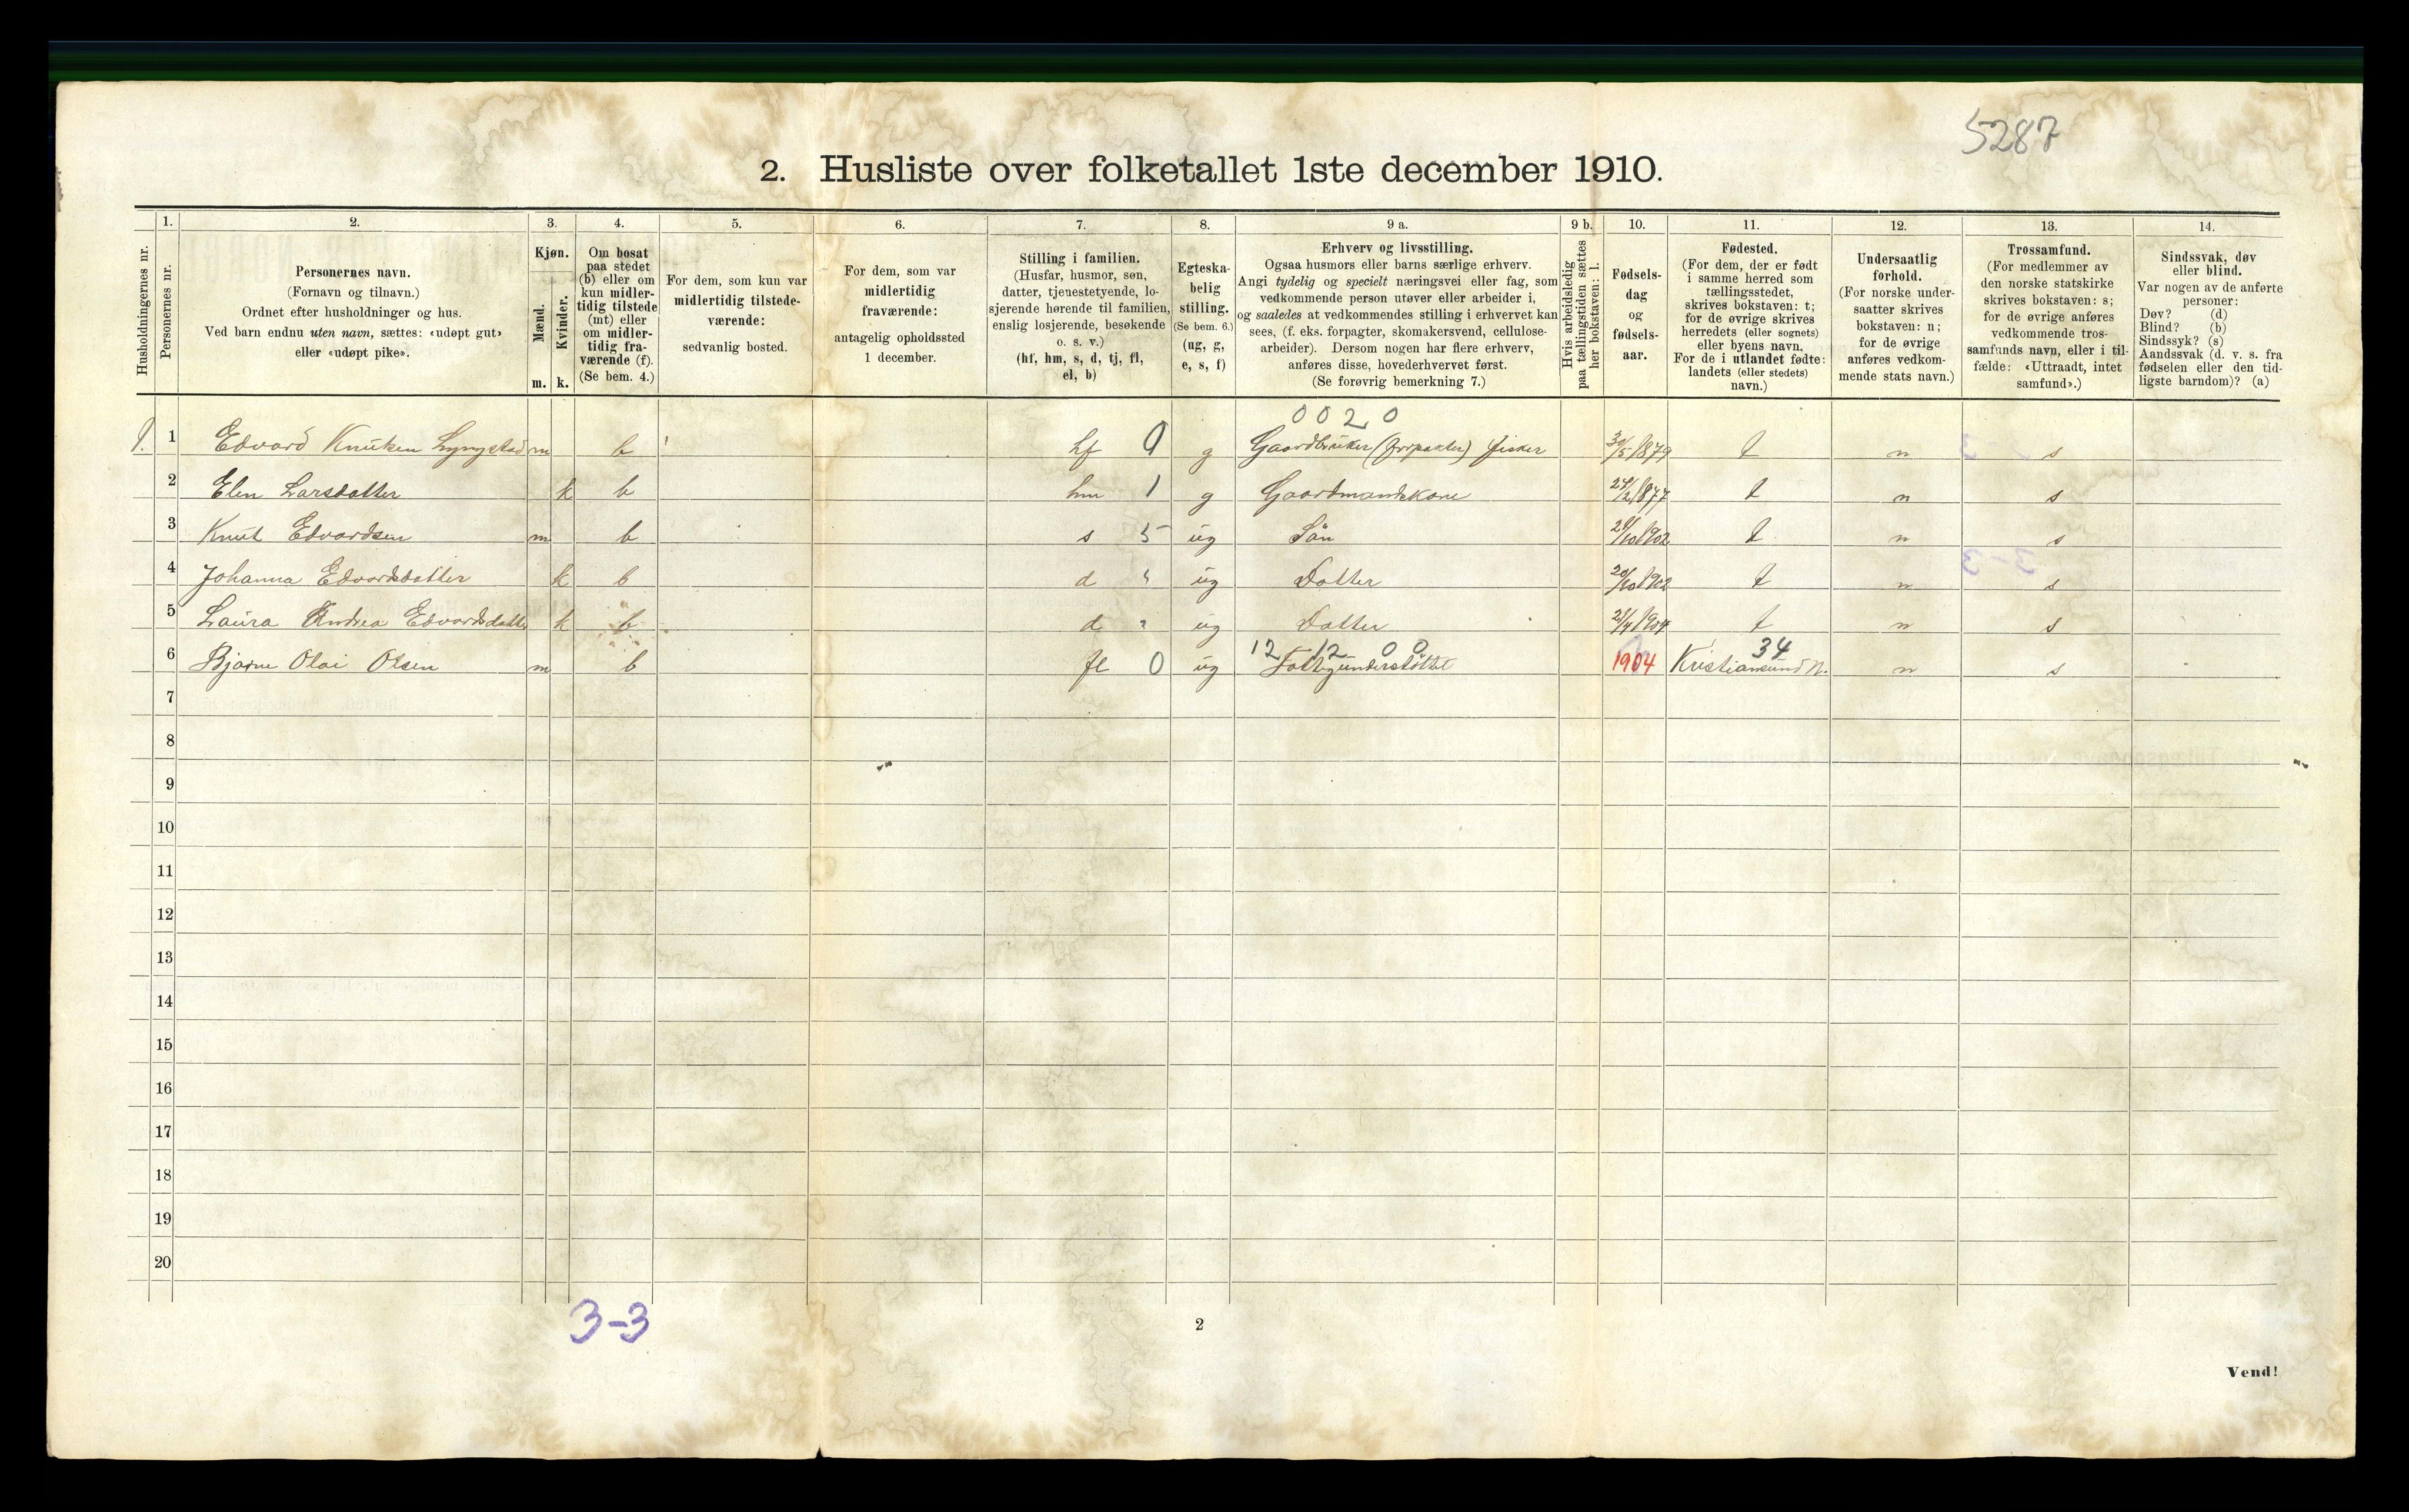 5287
2. Husliste over folketallet 1ste december 1910.
Husholdningernes nr.
1.
Personernes nr.
2.
Personernes navn.
(Fornavn og tilnavn.)
Ordnet efter husholdninger og hus.
Ved barn endnu uten navn, sættes: «udøpt gut»
eller «udøpt pike».
3.
Kjøn.
Mænd.
Kvinder.
m. k.
4.
Om bosat
paa stedet
(b) eller om
kun midler-
tidig tilstede
(mt) eller
om midler-
tidig fra-
værende (f).
(Se bem. 4.)
5.
For dem, som kun var
midlertidig tilstede-
værende:
sedvanlig bosted.
6.
For dem, som var
midlertidig
fraværende:
antagelig opholdssted
1 december.
7.
Stilling i familien.
(Husfar, husmor, søn,
datter, tjenestetyende, lo-
sjerende hørende til familien,
enslig losjerende, besøkende
o. s. v.)
(hf, hm, s, d, tj, fl,
el, b)
8.
Egteska-
belig
stilling.
(Se bem. 6.)
(ug, g,
e, s, f)
9 a.
Erhverv og livsstilling.
Ogsaa husmors eller barns særlige erhverv.
Angi tydelig og specielt næringsvei eller fag, som
vedkommende person utøver eller arbeider i,
og saaledes at vedkommendes stilling i erhvervet kan
sees, (f. eks. forpagter, skomakersvend, cellulose-
arbeider). Dersom nogen har flere erhverv,
anføres disse, hovederhvervet først.
(Se forøvrig bemerkning 7.)
9 b.
Hvis arbeidsledig
paa tællingstiden sættes
her bokstaven: l.
10.
Fødsels-
dag
og
fødsels-
aar.
11.
Fødested.
(For dem, der er født
i samme herred som
tællingsstedet,
skrives bokstaven: t;
for de øvrige skrives
herredets (eller sognets)
eller byens navn.
For de i utlandet fødte:
landets (eller stedets)
navn.)
12.
Undersaatlig
forhold.
(For norske under-
saatter skrives
bokstaven: n;
for de øvrige
anføres vedkom-
mende stats navn.)
13.
Trossamfund.
(For medlemmer av
den norske statskirke
skrives bokstaven: s;
for de øvrige anføres
vedkommende tros-
samfunds navn, eller i til-
fælde: «Uttraadt, intet
samfund».)
14.
Sindssvak, døv
eller blind.
Var nogen av de anførte
personer:
Døv? (d)
Blind? (b)
Sindssyk? (s)
Aandssvak (d. v. s. fra
fødselen eller den tid-
ligste barndom)? (a)
0020
1. 1 Edvard Knutsen Lyngstad m b hf 0 g Gaardbruker (forpakter) fisker 30/5 1879 t n s
2 Elen Larsdatter k b hm 1 g Gaardmandskone 1877 t n s
3 Knut Edvardsen m b s 5 ug Sön 1902 t n s
4 Johanna Edvardsdatter k b d " ug Datter 1902 t n s
5 Laura Andrea Edvardsdatter k b d " ug Datter 1904 t n s
12 12 0 0 34
6 Bjarne Olai Olsen m b fl 0 ug Fattigunderstöttet 1904 Kristiansund N. n s
7
8
9
10
11
12
13
14
15
16
17
18
19
20
3-3
2
Vend!